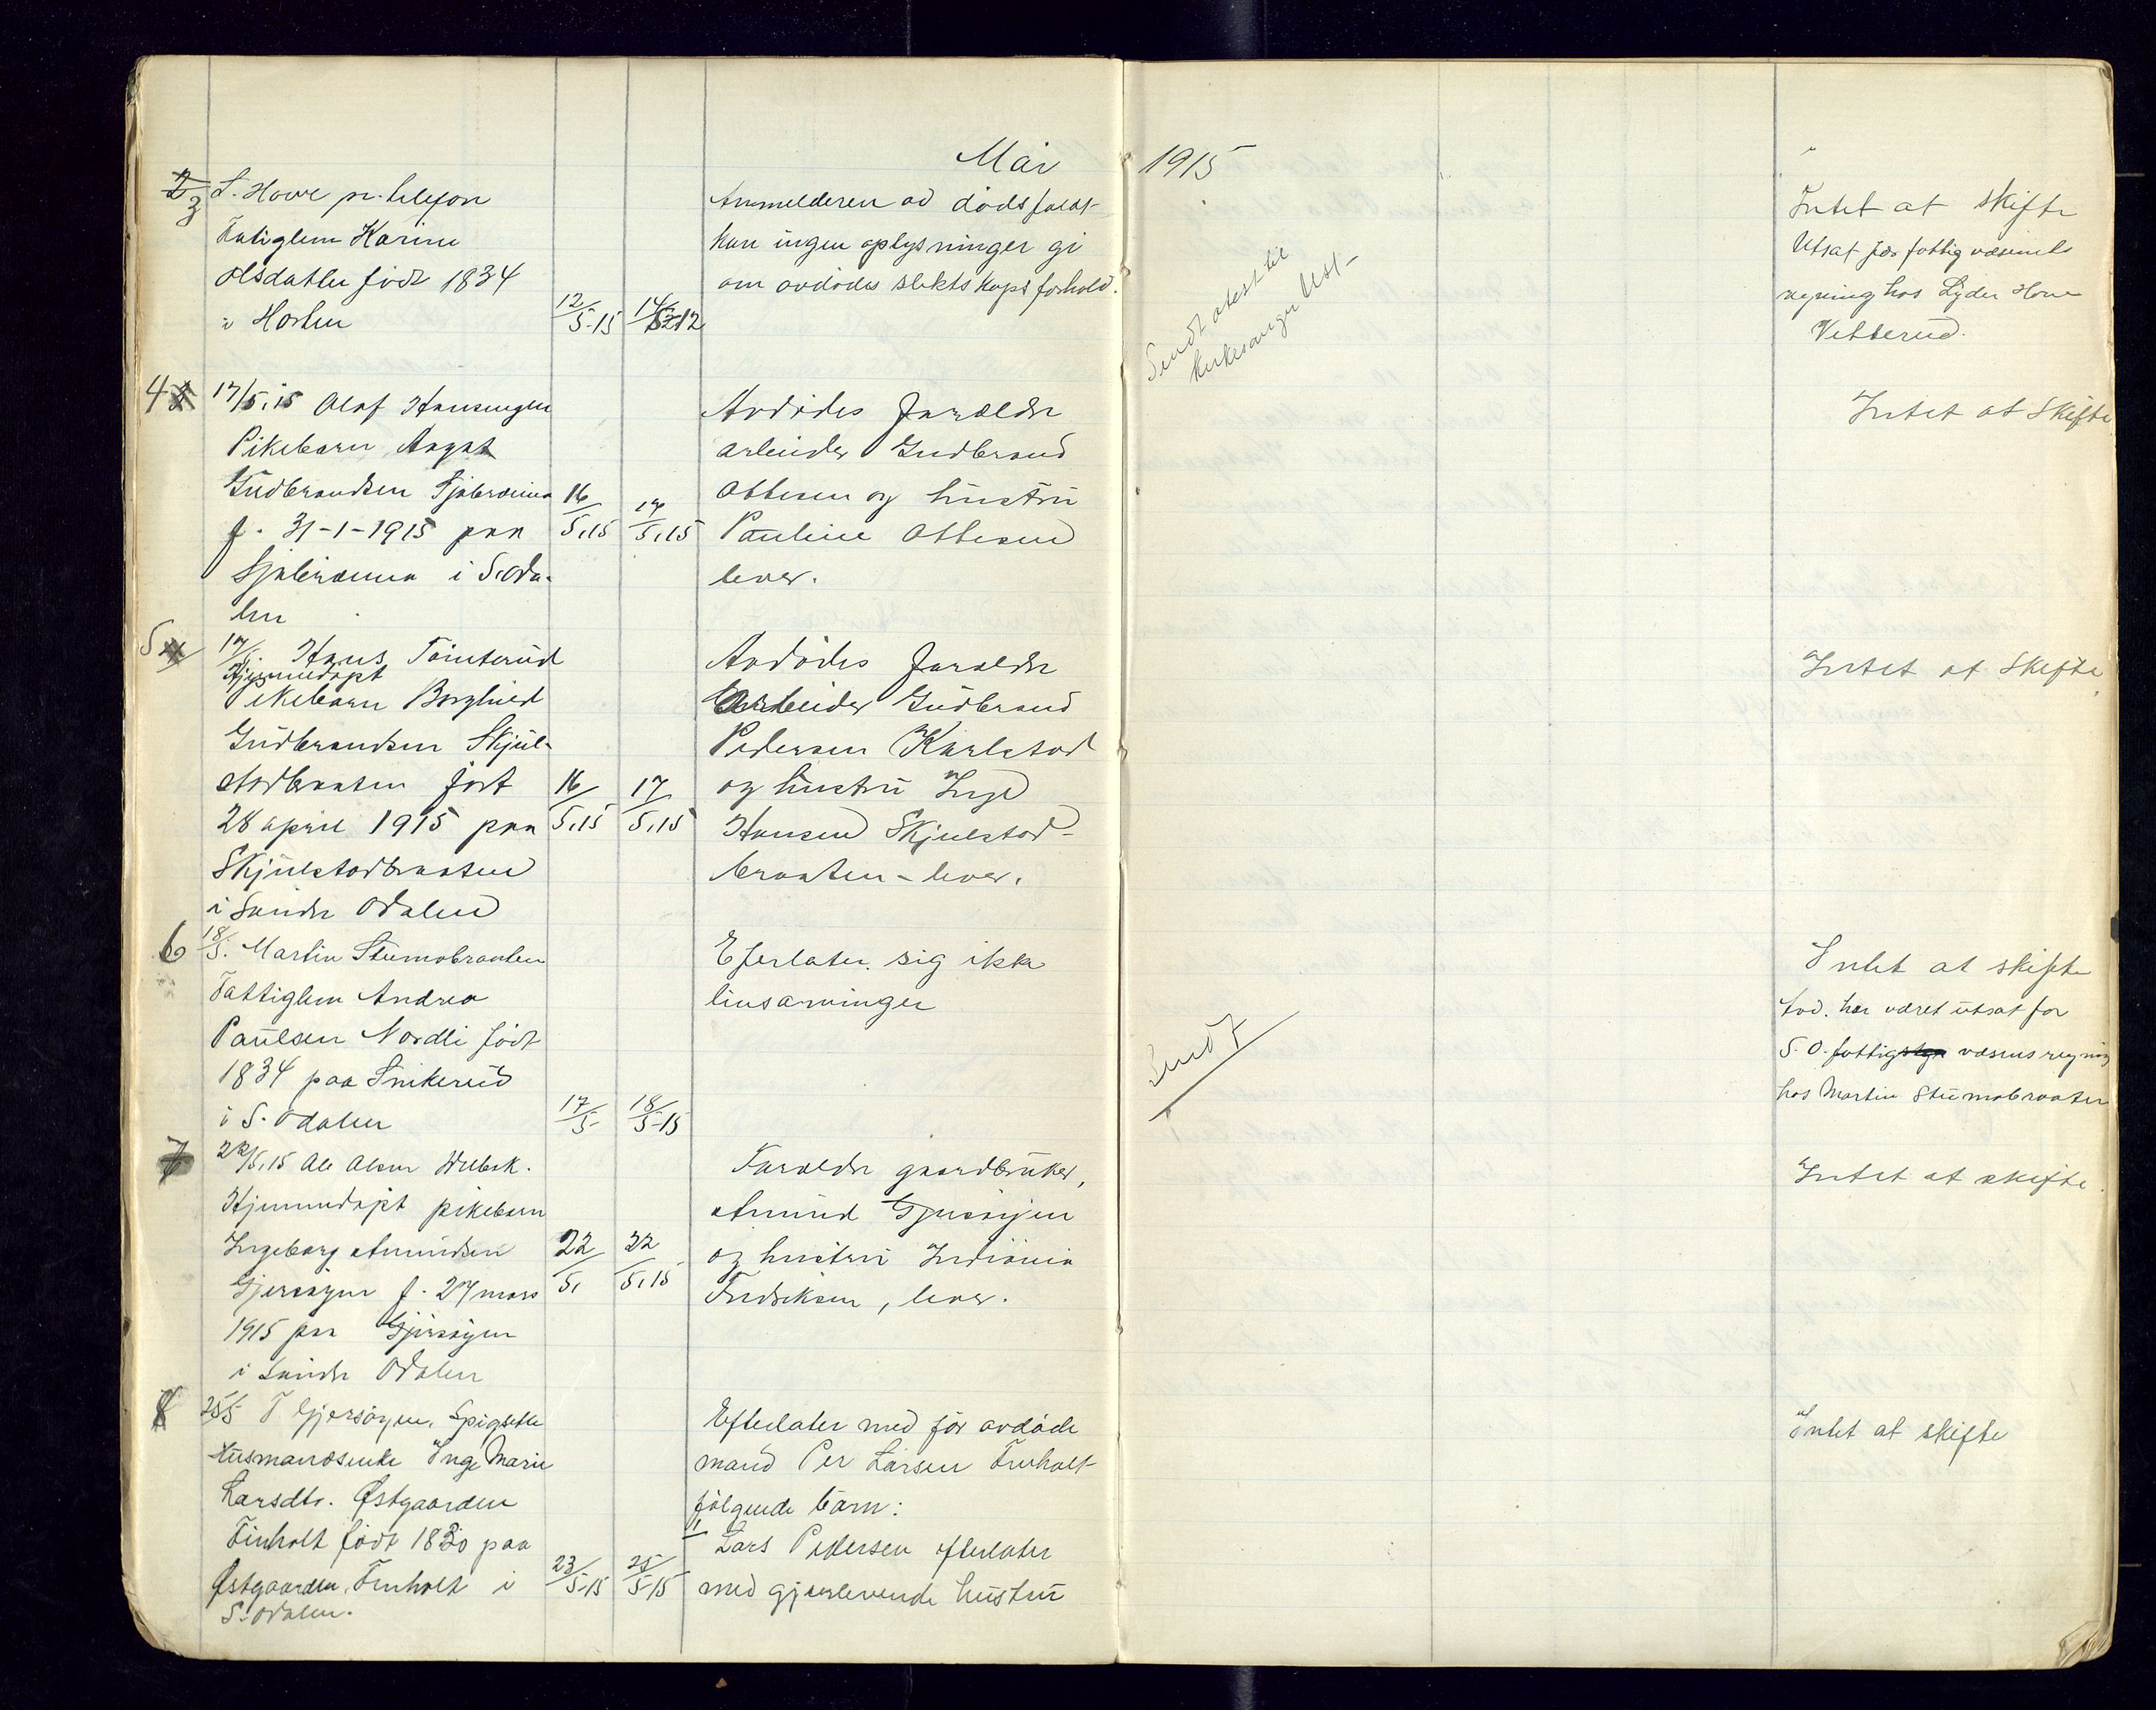 Mai 1915
3
L. Howe pr. telefon
Fatiglem Karine
Olsdatter född 1834
i Horten
12/5-15
14/5-12
Anmelderen av dødsfaldt
kan ingen oplysninger gi
om avdødes slektskapsforhold.
Sendt atest til
kirkesanger Ust-
Intet at skifte
Utsat for fattigvæsenets
regning hos Lyder Howe
Vetterud.
4
17/5.15 Olaf
Pikebarn Aagot
Gudbrandsen Sjøbrænna
f. 31-1-1915 paa
Sjøbrænna i S. Oda-
len
16/5.15
17/5.15
Avdødes foreldre
arbeider Gudbrand
Ottesen og hustru
Pauline Ottesen
lever.
Intet at Skifte
5
17/5 Hans Tønterud
Hjemmedøpt
Pikebarn Borghild
Gudbrandsen Skjul-
stadbraaten født
28 april 1915 paa
Skjulstadbraaten
i Søndre Odalen
16/5.15
17/5.15
Avdødes foreldre
Arbeider Gudbrand
Pedersen Karlstad
og hustru Inga
Hansen Skjulstad-
braaten - lever.
Intet at Skifte
6
18/5. Martin Stumobraaten
Fattiglem Andrea
Paulsen Nordli født
1834 paa Snikerud
i S. Odalen
17/5-
18/5-15
Eferlater sig ikke
livsarvinger
Sendt
Intet at skifte
Avd. har været utsat for
S. O. fattig væsens regning
hos Martin Stumobraaten
7
22/5.15 Ole Olsen
Hjemmedøpt pikebarn
Ingeborg Amundsen
Gjersøyen f. 27 mars
1915 paa Gjersøyen
i Søndre Odalen
22/5.
22/5.15
Foreldre gaardbruker,
Amund Gjersøyen
og hustru Indiania
Fredriksen, lever.
Intet at skifte.
8
25/5 T Gjersøyen. Spigsetle
Husmandsenke Inge Marie
Larsdtr. Østgaarden
Finholt født 1830 paa
Østgaarden, Finholt i
S. Odalen.
23/5-15
25/5-15
Efterlater med før avdøde
mand Per Larsen Finholt
følgende barn:
1 Lars Pedersen efterlater
med gjenlevende hustru
Intet at skifte